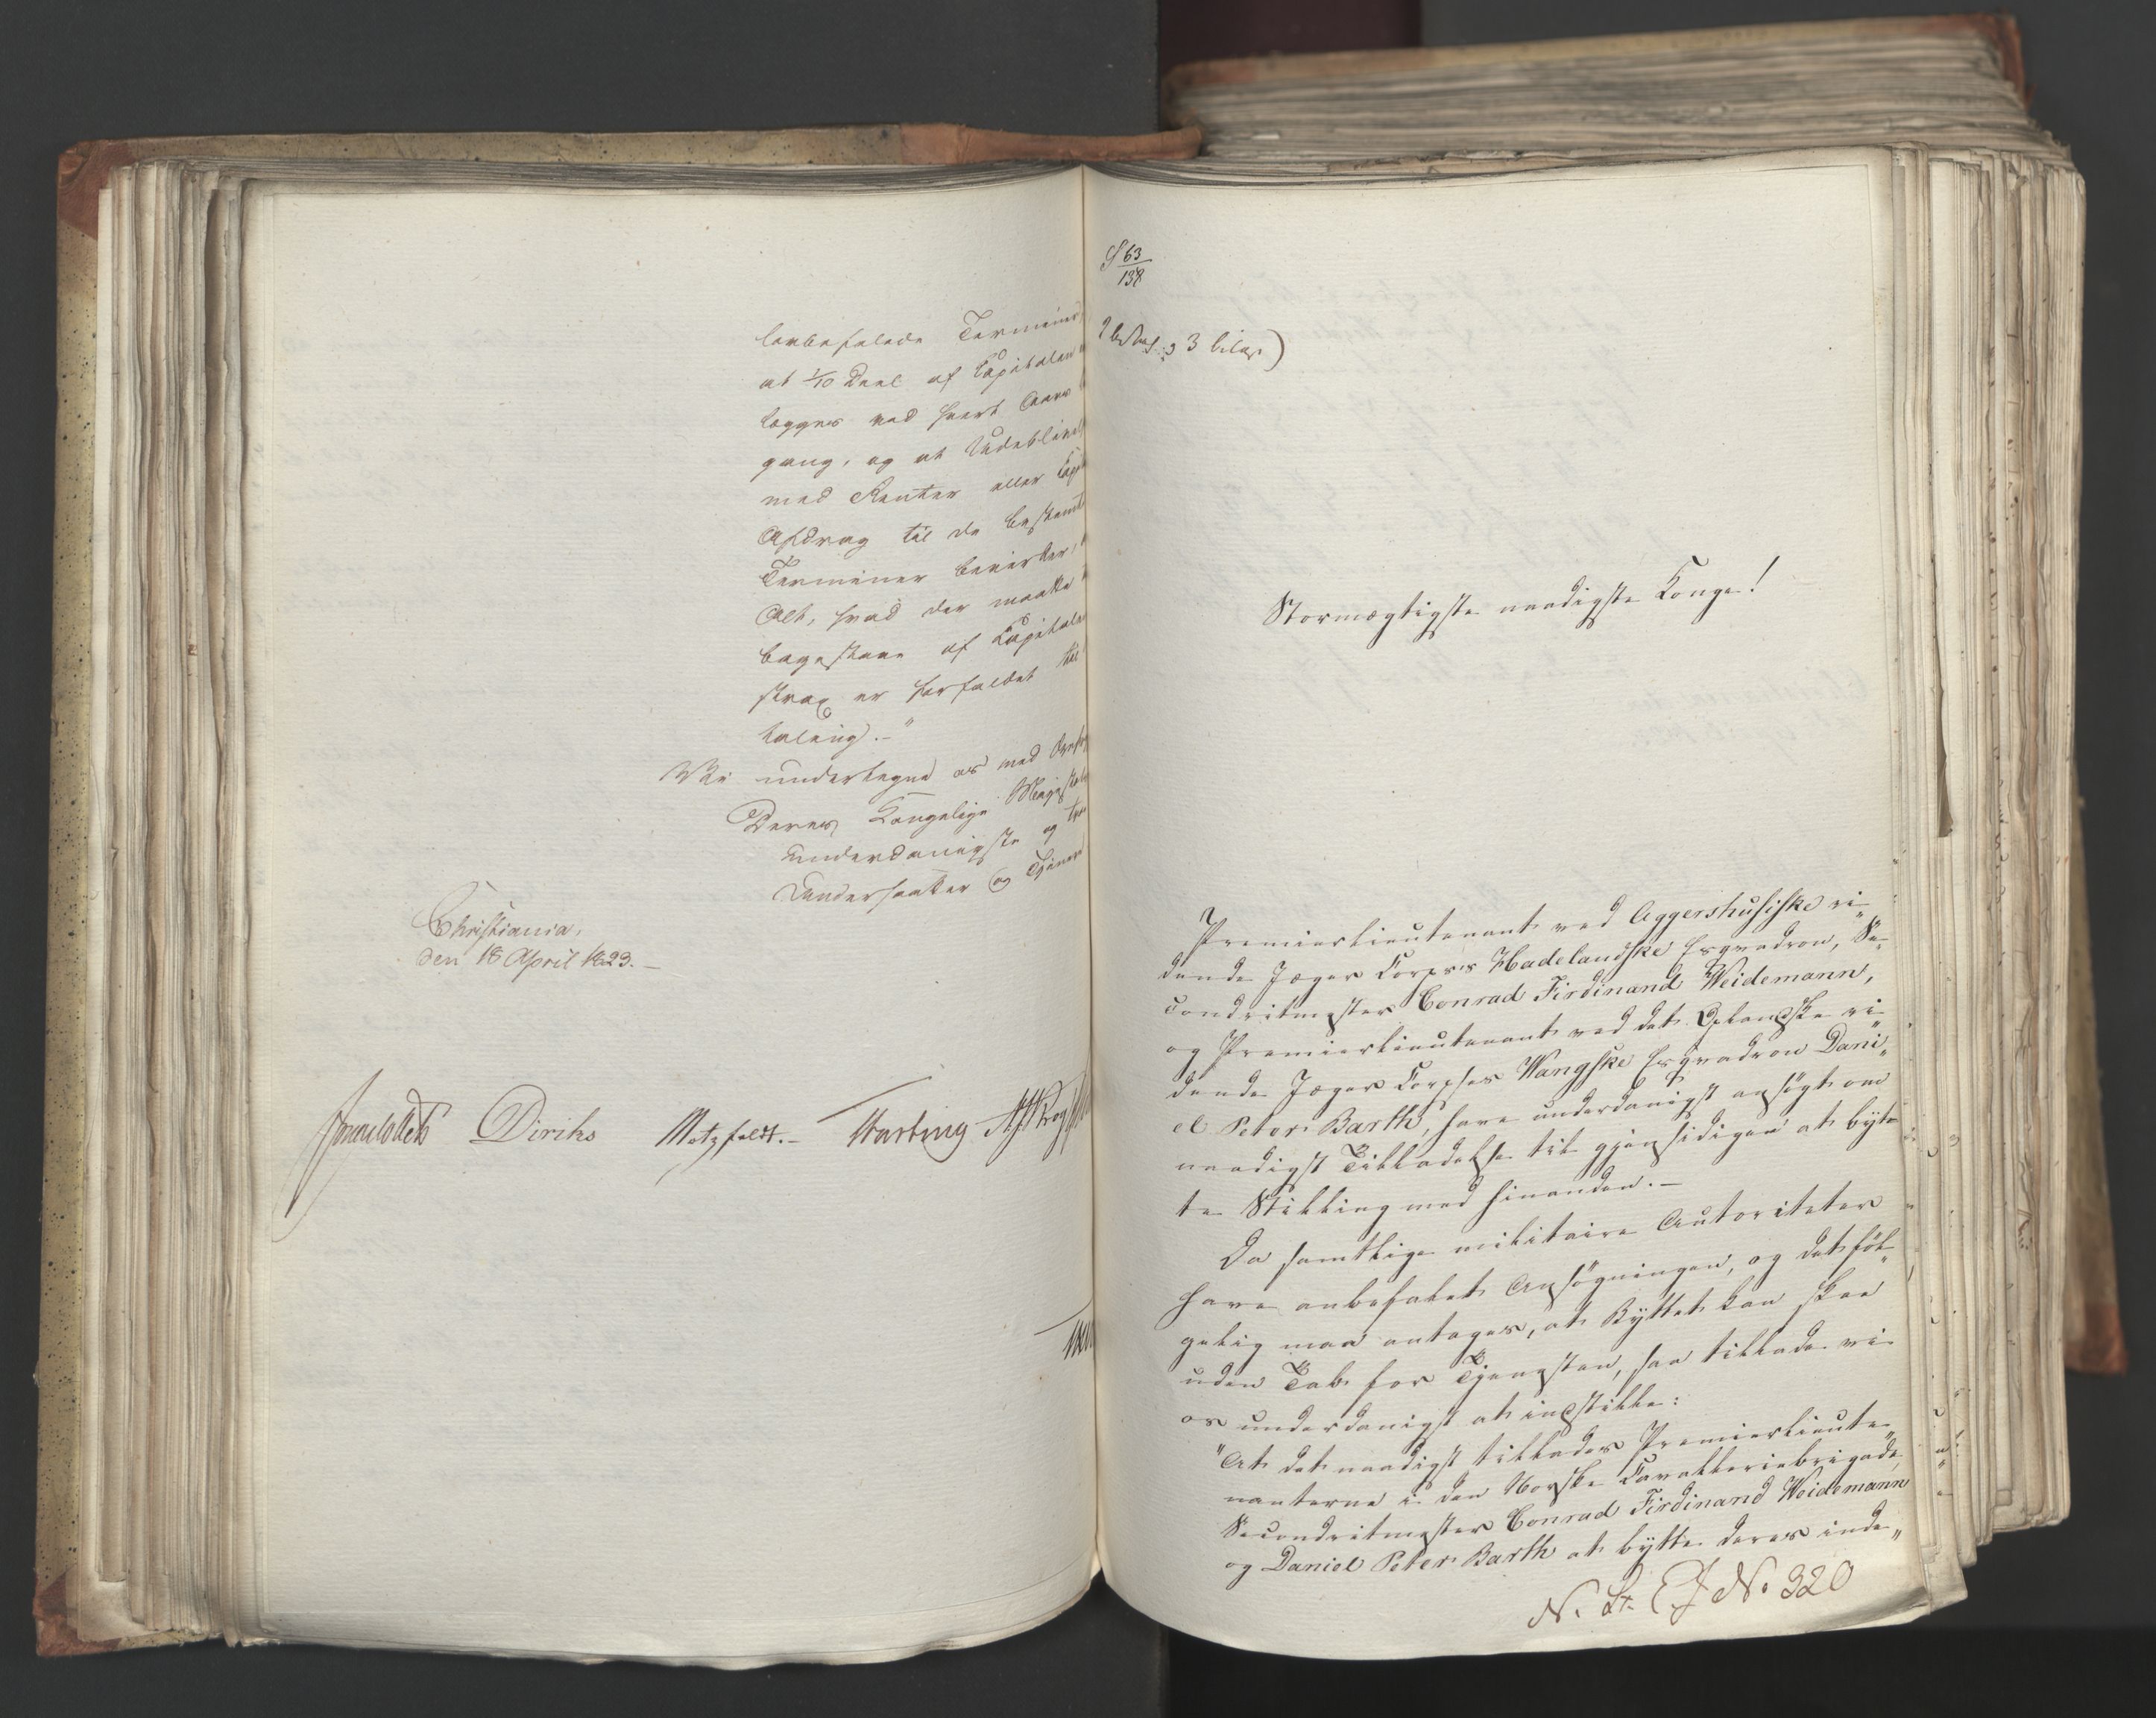 lovbefalede Terminer,
at 1/10 Deel af Capitalen
lægges ved hvert Aars
gang, og at Udeblivel
med Renter eller Capi
Afdrag til de bestemte
Terminer bevirker,
Alt, hvad der maatte
bagestaae af Capitalen
strax er forfaldet til
taling.-"
Vi undertegne os med
Deres Kongelige Majestæts
underdanigste og tro
Undersaatter og Tjenere
Christiania,
den 18 April 1823.-
Diriks Motzfeldt.- Harbing
S 63
138
3 bilag)
Stormægtigste naadigste Konge!
Premierlieutenant ved Aggershusiske ri„
dende Jæger Corps's Hadelandske Esqvadron, Se„
condritmester Conrad Firdinand Weidemann,
og Premierlieutenant ved det Oplandske ri„
dende Jæger Corpses Wangske Esqvadron Dani„
el Peter Barth, have underdanigst ansögt om
naadigst Tilladelse til gjensidigen at byt„
te Stilling med hinanden.-
Da samtlige militaire Autoriteter
have anbefalet Ansögningen, og det föl„
gelig maa antages, at Byttet kan skee
uden Tab for Tjenesten, saa tillade vi
os underdanigst at indstille:
"At det naadigst tillades Premierlieute„
nanterne i den Norske Cavalleriebrigade,
Secondritmester Conrad Firdinand Weidemann
og Daniel Peter Barth at bytte deres inde„
N. St. E J No 320